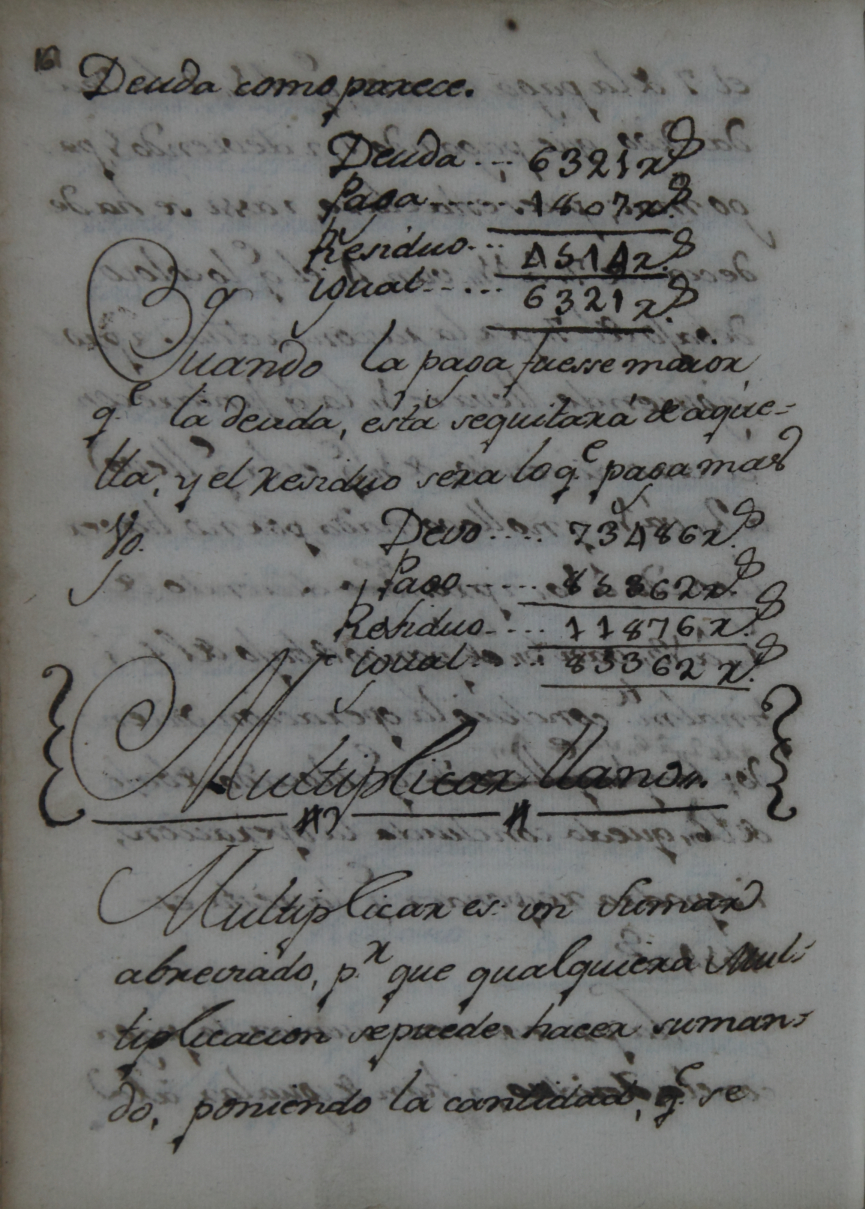 16
Deuda como parece.
Deuda... 6321 r.s
Paga... 1807 r.s
Residuo... 4514 r.s
igual... 6321 r.s
Quando la paga fuesse maior
q.e la deuda, esta sequitará de aque=
lla, y el residuo sera lo q.e paga mas
Devo..... 73486 r.s
Pago...... 85362 r.s
Residuo.... 11876 r.s
igual... 85362 r.s
Multiplicar llano.
Multiplicar es un sumar
abreviado, p.r que qualquiera Mul=
tiplicacion sepuede hacer suman=
do, poniendo la cantidad, q.e se